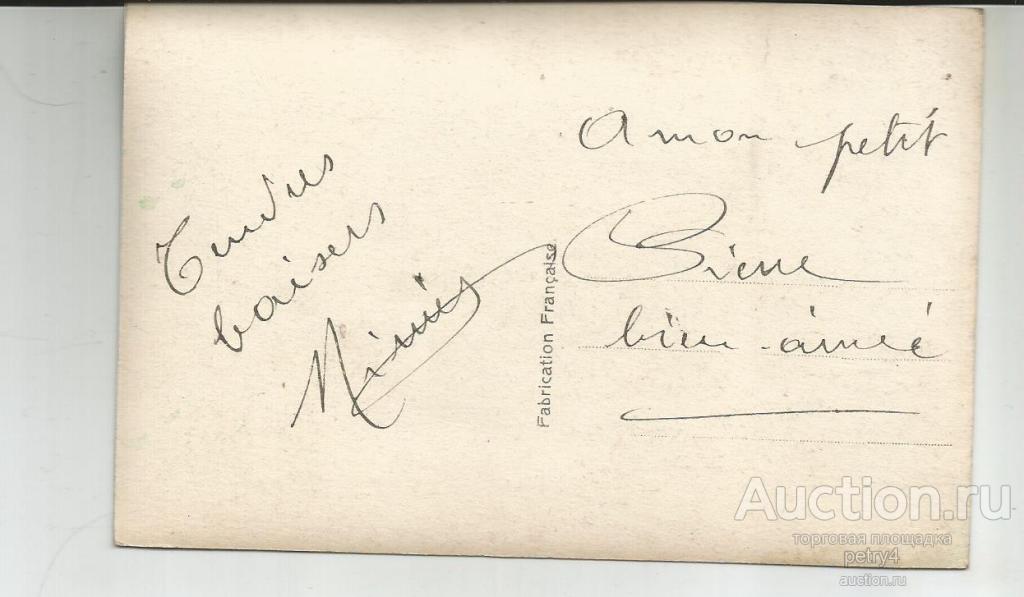 Tendres
baisers
A mon petit
Pierre
bien-aimé
Fabrication Française
Auction.ru
торговая площадка
petry4
auction.ru